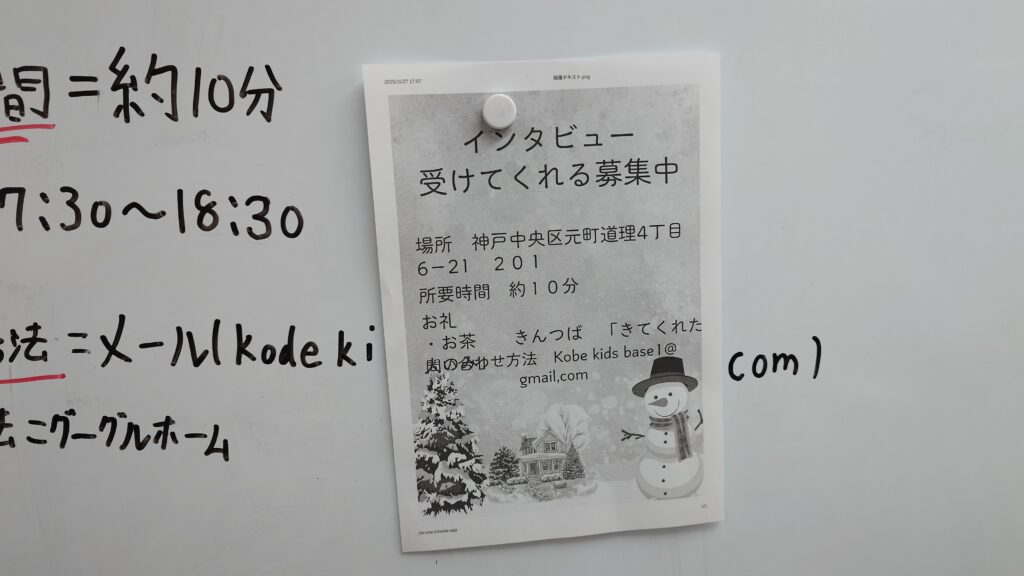 間=約10分
7:30〜18:30
法=メール(kode ki
com)
法=グーグルホーム
2025/11/27 17:07
段落テキスト.png
インタビュー
受けてくれる募集中
場所 神戸中央区元町道理4丁目
6−21 201
所要時間 約10分
お礼
・お茶 きんつば 「きてくれた
人のみ」
問い合わせ方法 Kobe kids base1@
gmail,com
1/1